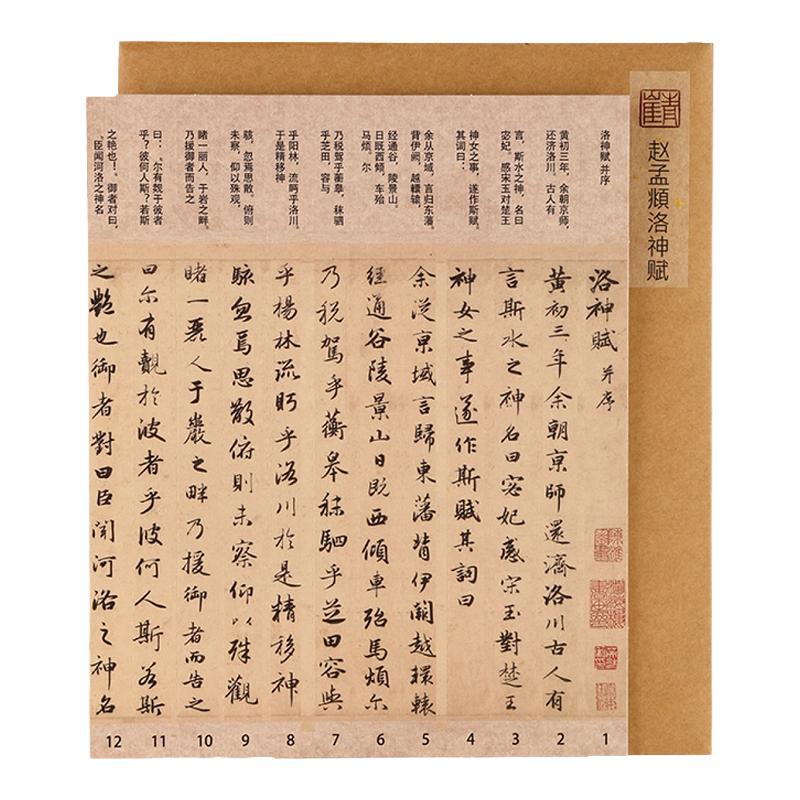 赵孟頫洛神赋
洛神赋 并序
黄初三年,余朝京师,
还济洛川。古人有
言,斯水之神,名曰
宓妃。感宋玉对楚王
神女之事,遂作斯赋。
其词曰:
余从京域,言归东藩。
背伊阙,越轘辕,
经通谷,陵景山。
日既西倾,车殆
马烦。尔
乃税驾乎蘅皋,秣驷
乎芝田,容与
乎阳林,流眄乎洛川。
于是精移神
骇,忽焉思散。俯则
未察,仰以殊观。
睹一丽人,于岩之畔。
乃援御者而告之
曰:“尔有觌于彼者
乎?彼何人斯?若斯
之艳也!”御者对曰:
“臣闻河洛之神名
洛神賦 并序
黄初三年余朝京師還濟洛川古人有
言斯水之神名曰宓妃感宋玉對楚王
神女之事遂作斯賦其詞曰
余從京域言歸東藩背伊闕越轘轅
經通谷陵景山日既西傾車殆馬煩尔
乃税駕乎蘅皋秣駟乎芝田容與
乎楊林流眄乎洛川於是精移神
駭忽焉思散俯則未察仰以殊觀
睹一麗人于巖之畔乃援御者而告之
曰尔有覿於彼者乎彼何人斯若斯
之艷也御者對曰臣聞河洛之神名
12 11 10 9 8 7 6 5 4 3 2 1